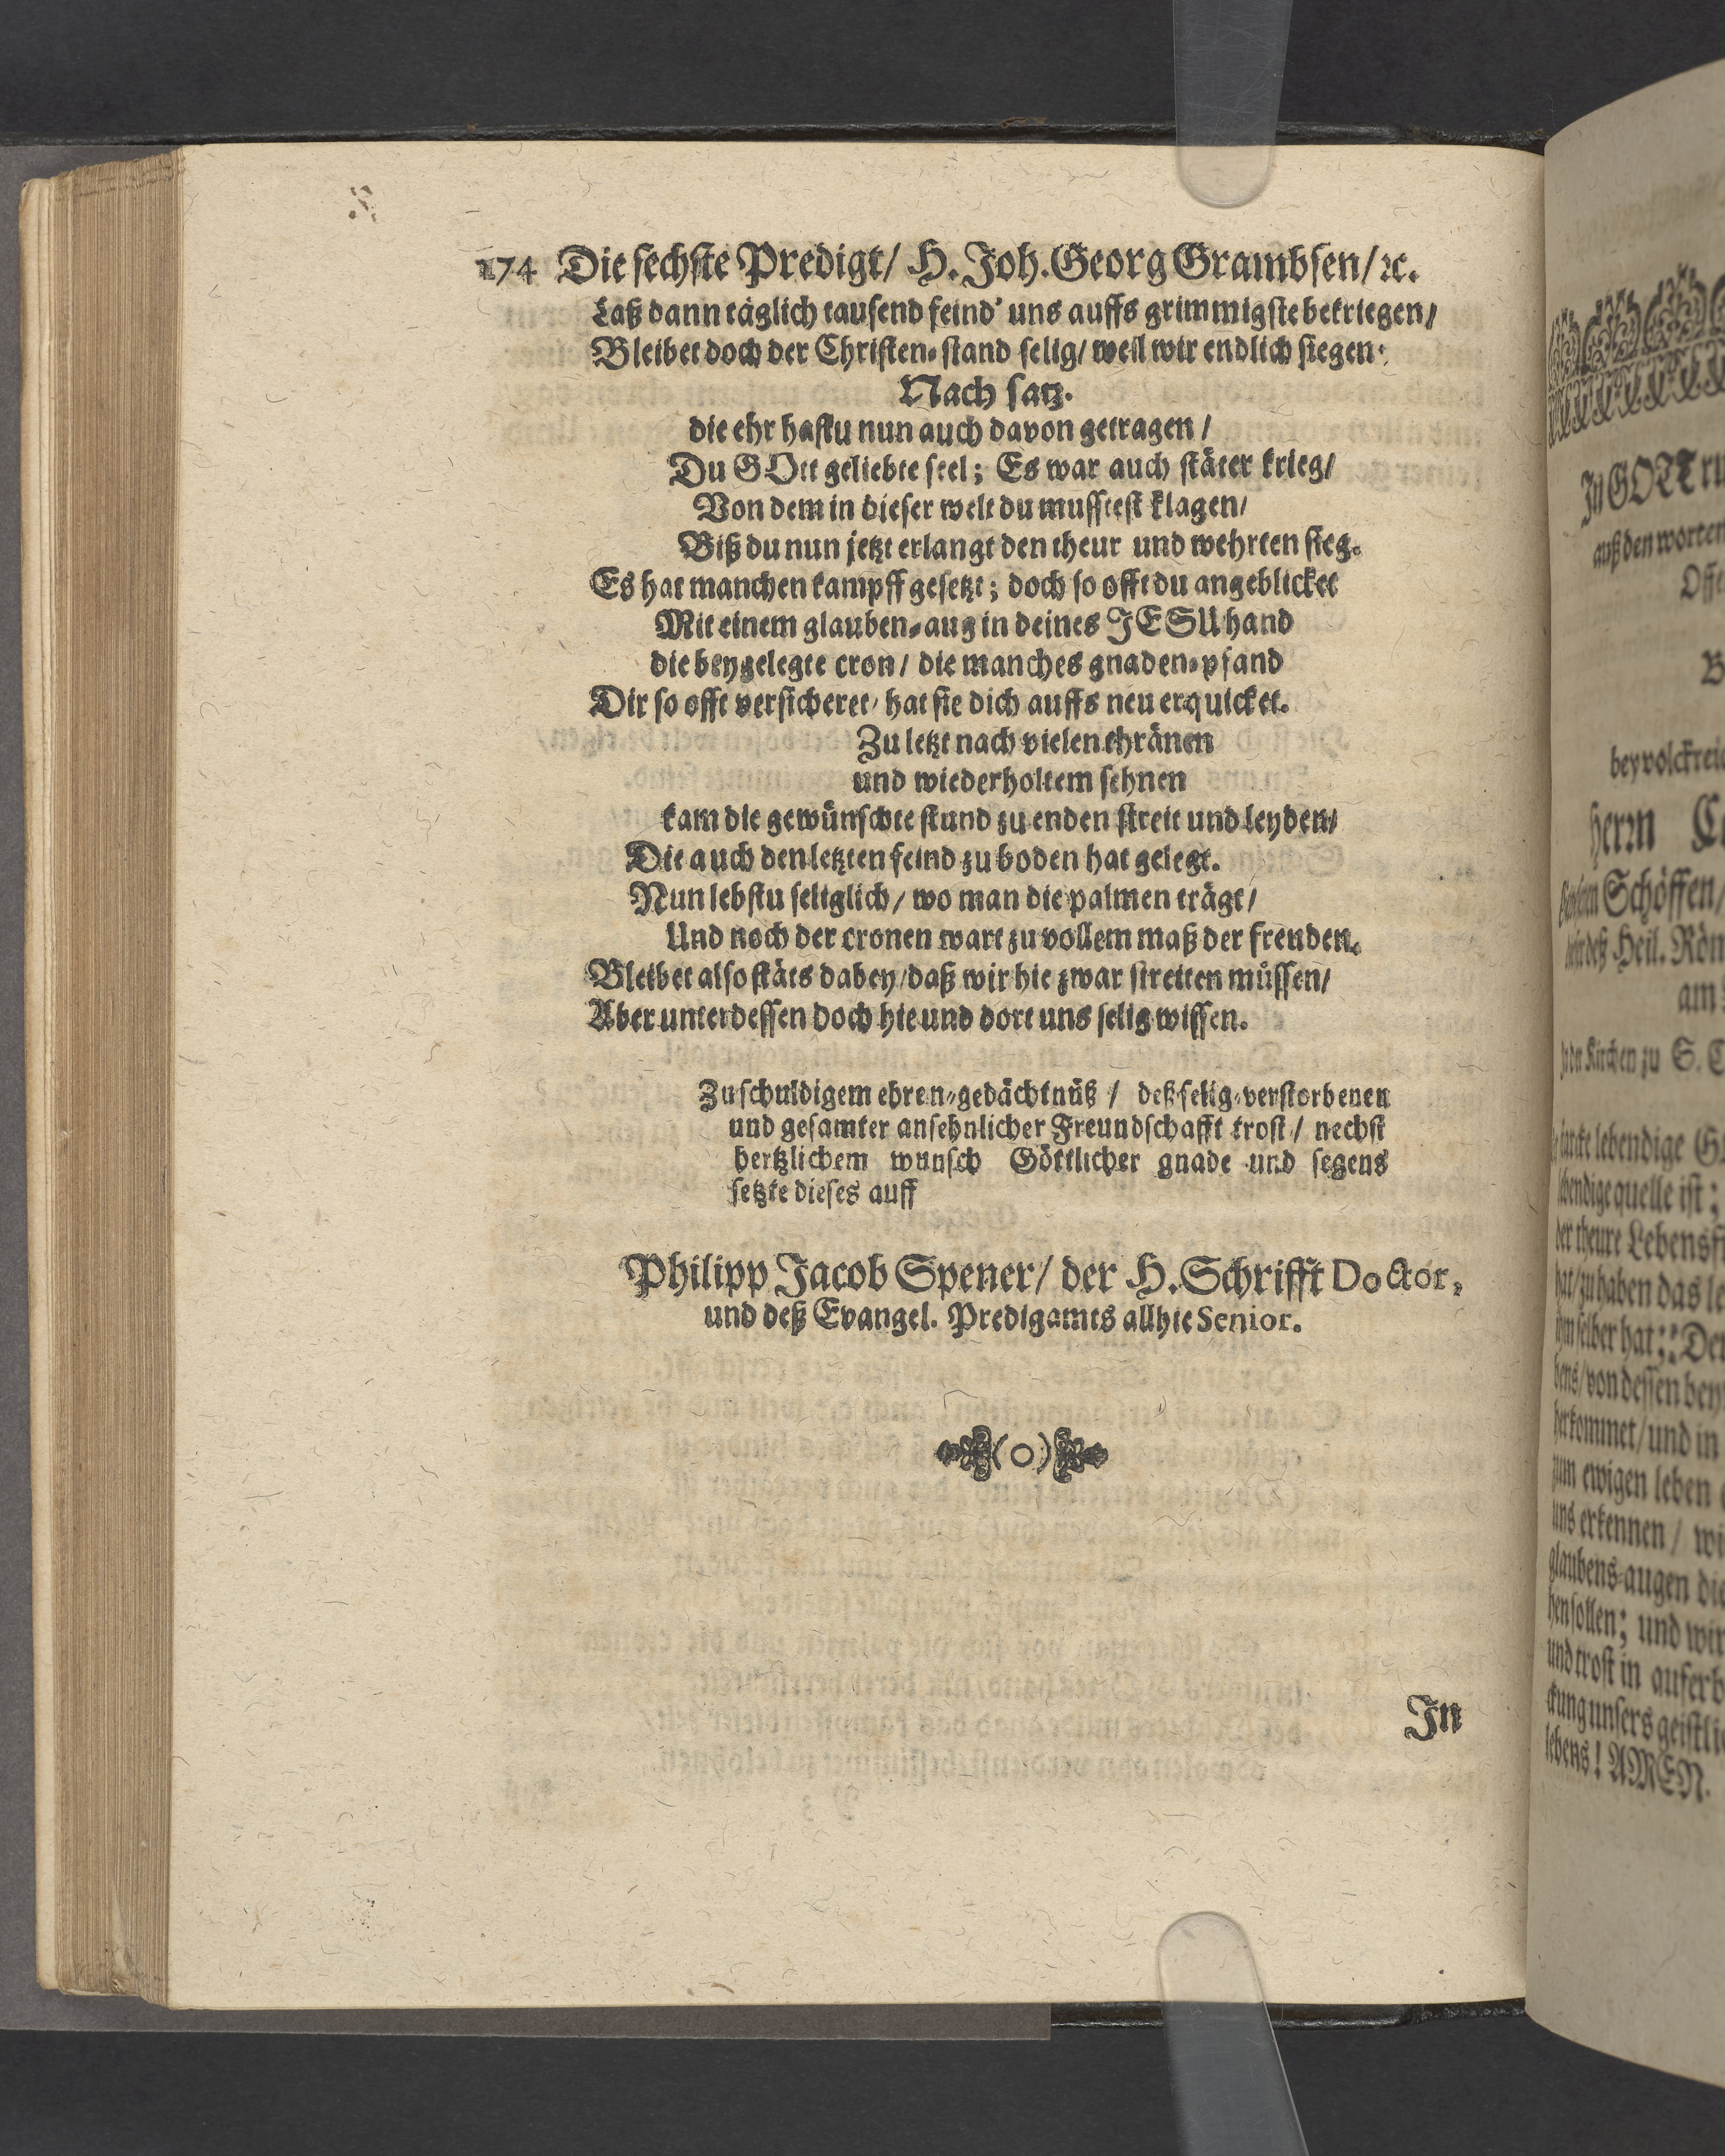 174 Die sechste Predigt/ H. Joh. Georg Grambsen/ ꝛc.
Laß dann täglich tausend feind' uns auffs grimmigste bekriegen/
Bleibet doch der Christen-stand selig/ weil wir endlich siegen.
Nach satz.
die ehr hastu nun auch davon getragen /
Du GOtt geliebte seel; Es war auch stäter krieg/
Von dem in dieser welt du musstest klagen/
Biß du nun jetzt erlangt den theur und wehrten sieg.
Es hat manchen kampff gesetzt; doch so offt du angeblicket
Mit einem glauben-aug in deines JESU hand
die beygelegte cron/ die manches gnaden-pfand
Dir so offt versicheret/ hat sie dich auffs neu erquicket.
Zu letzt nach vielen thränen
und wiederholtem sehnen
kam die gewünschte stund zu enden streit und leyden/
Die auch den letzten feind zu boden hat gelegt.
Nun lebstu seliglich/ wo man die palmen trägt/
Und noch der cronen wart zu vollem maß der freuden.
Bleibet also stäts dabey/ daß wir hie zwar streiten müssen/
Aber unterdessen doch hie und dort uns selig wissen.
Zu schuldigem ehren-gedächtnüß / deß selig-verstorbenen
und gesamter ansehnlicher Freundschafft trost/ nechst
hertzlichem wunsch Göttlicher gnade und segens
setzte dieses auff
Philipp Jacob Spener/ der H. Schrifft Doctor,
und deß Evangel. Predigamts allhie Senior.
(o)
In
In GOTT
auß den worten
bey
herm
Schöffen/
deß Heil. Röm
am
Kirchen zu S.
lebendige
quelle ist;
der theure Lebens
hat/ zu haben das
selber hat: Der
von dessen
herkommet/ und in
zum ewigen leben
uns erkennen/
glaubens-augen die
sollen; und wir
und trost in
unsers
lebens! AMEN.